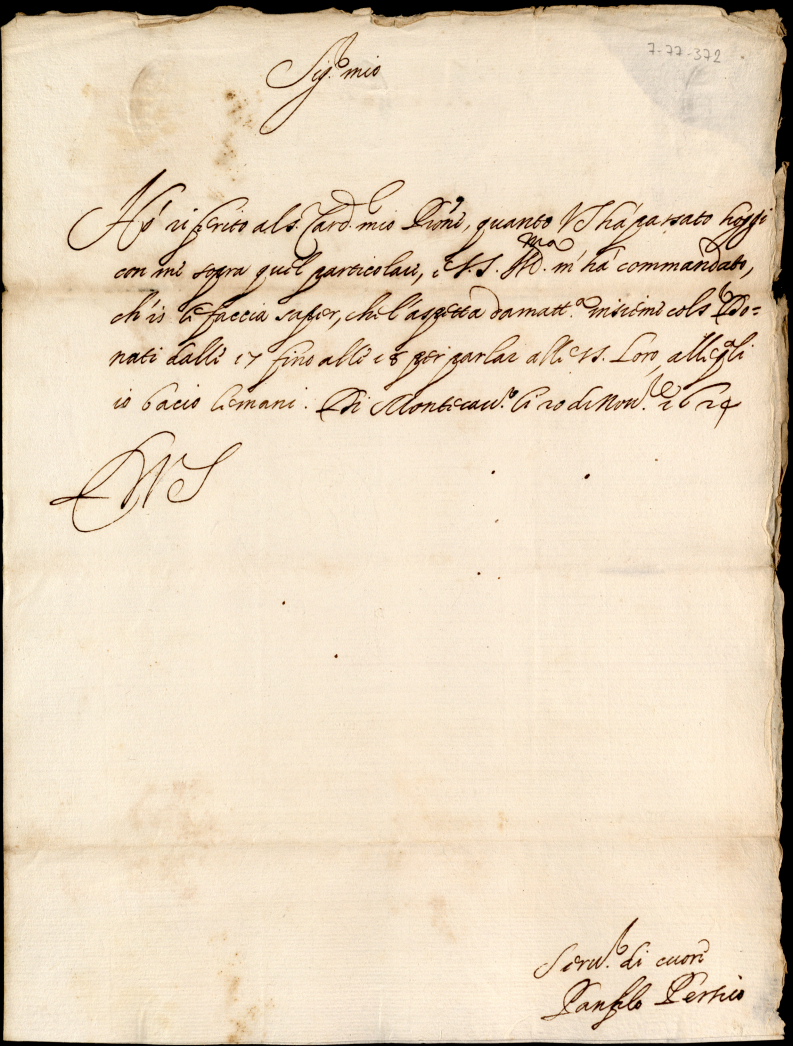 7-77-372
Sig.r mio
Hò riferito al s. Card. mio Prone, quanto VS hà passato hoggi
con me sopra quel particolare, e S.S. Ill.ma m'hà commandato,
ch'io le faccia saper, che l'aspetta domatt.a insieme col s.r Do=
nati dalli 17 fino alli 18 per parlar alle SS. Loro, alle q.li
io bacio le mani. Di Montecau.o li 20 di Nou.re 1624
VS
Seru.re di cuore
Panfilo Persico